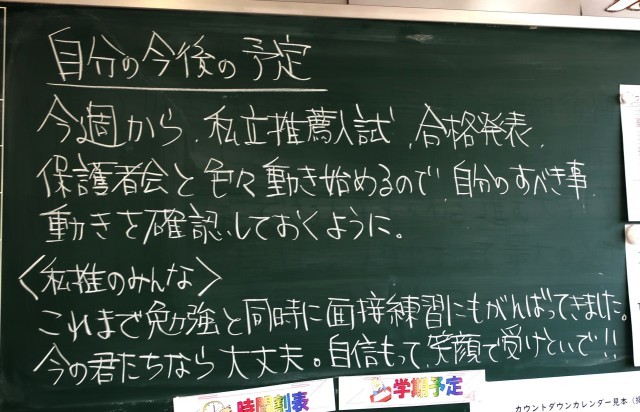 自分の今後の予定
今週から、私立推薦入試、合格発表、
保護者会と色々動き始めるので、自分のすべき事、
動きを確認しておくように。
〈私推のみんな〉
これまで勉強と同時に面接練習にもがんばってきました。
今の君たちなら大丈夫。自信もって、笑顔で受けといで!!
時間割表
学期予定
カウントダウンカレンダー見本